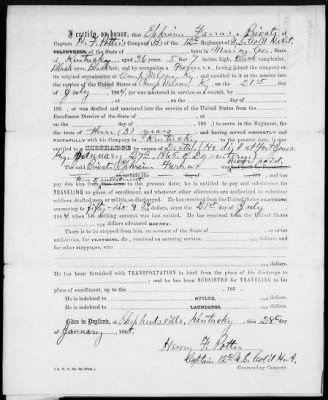 I certify, on honor, that Ephraim Farris a Private
Captain H. F. Potter's Company (B) of the 12th Regiment of U.S. Col'd H. Art.
VOLUNTEERS, of the State of born in Marion Co.,
State of Kentucky, aged 26 years; 5 feet 7 inches high; Black complexion,
Black eyes, Black hair, and by occupation a Farmer, having joined the company on its
original organization at Camp Nelson Ky, and enrolled in it at the muster
into the service of the United States at Camp Nelson Ky, on the 21st day of
July 1864, (or was mustered in service as a recruit, by
at , on the day of
186 , or was drafted and mustered into the service of the United States from the
Enrollment District of the State of , at
on the day of , 186 ), to serve in the Regiment, for the
term of Three (3) years and having served HONESTLY and
FAITHFULLY with his Company in Kentucky to the present date, is now
entitled to a DISCHARGE by reason of Death
Ky. January 27th 1865.
The said Private Ephraim Farris never paid
his enlistment and has
pay due him from to the present date; he is entitled to pay and subsistence for
TRAVELING to place of enrollment, and whatever other allowances are authorized to volunteer
soldiers, drafted men, or militia, so discharged. He has received from the United States CLOTHING
amounting to fifty dollars, since the 21st day of July
1864 when his clothing account was last settled. He has received from the United States
dollars advanced BOUNTY.
There is to be stopped from him, on account of the State of , or other
authorities, for CLOTHING, &c., received on entering service, dollars;
and for other stoppages, viz:
He has been furnished with TRANSPORTATION in kind from the place of his discharge to
; and he has been SUBSISTED for TRAVELING to his
place of enrollment, up to the , 186
He is indebted to , SUTLER, dollars.
He is indebted to , LAUNDRESS, dollars.
Given in Duplicate, at Shepherdsville, Kentucky this 28th day
of January, 1865.
Henry F. Potter
Captain 12th U.S. Col'd H.A.
Commanding Company.